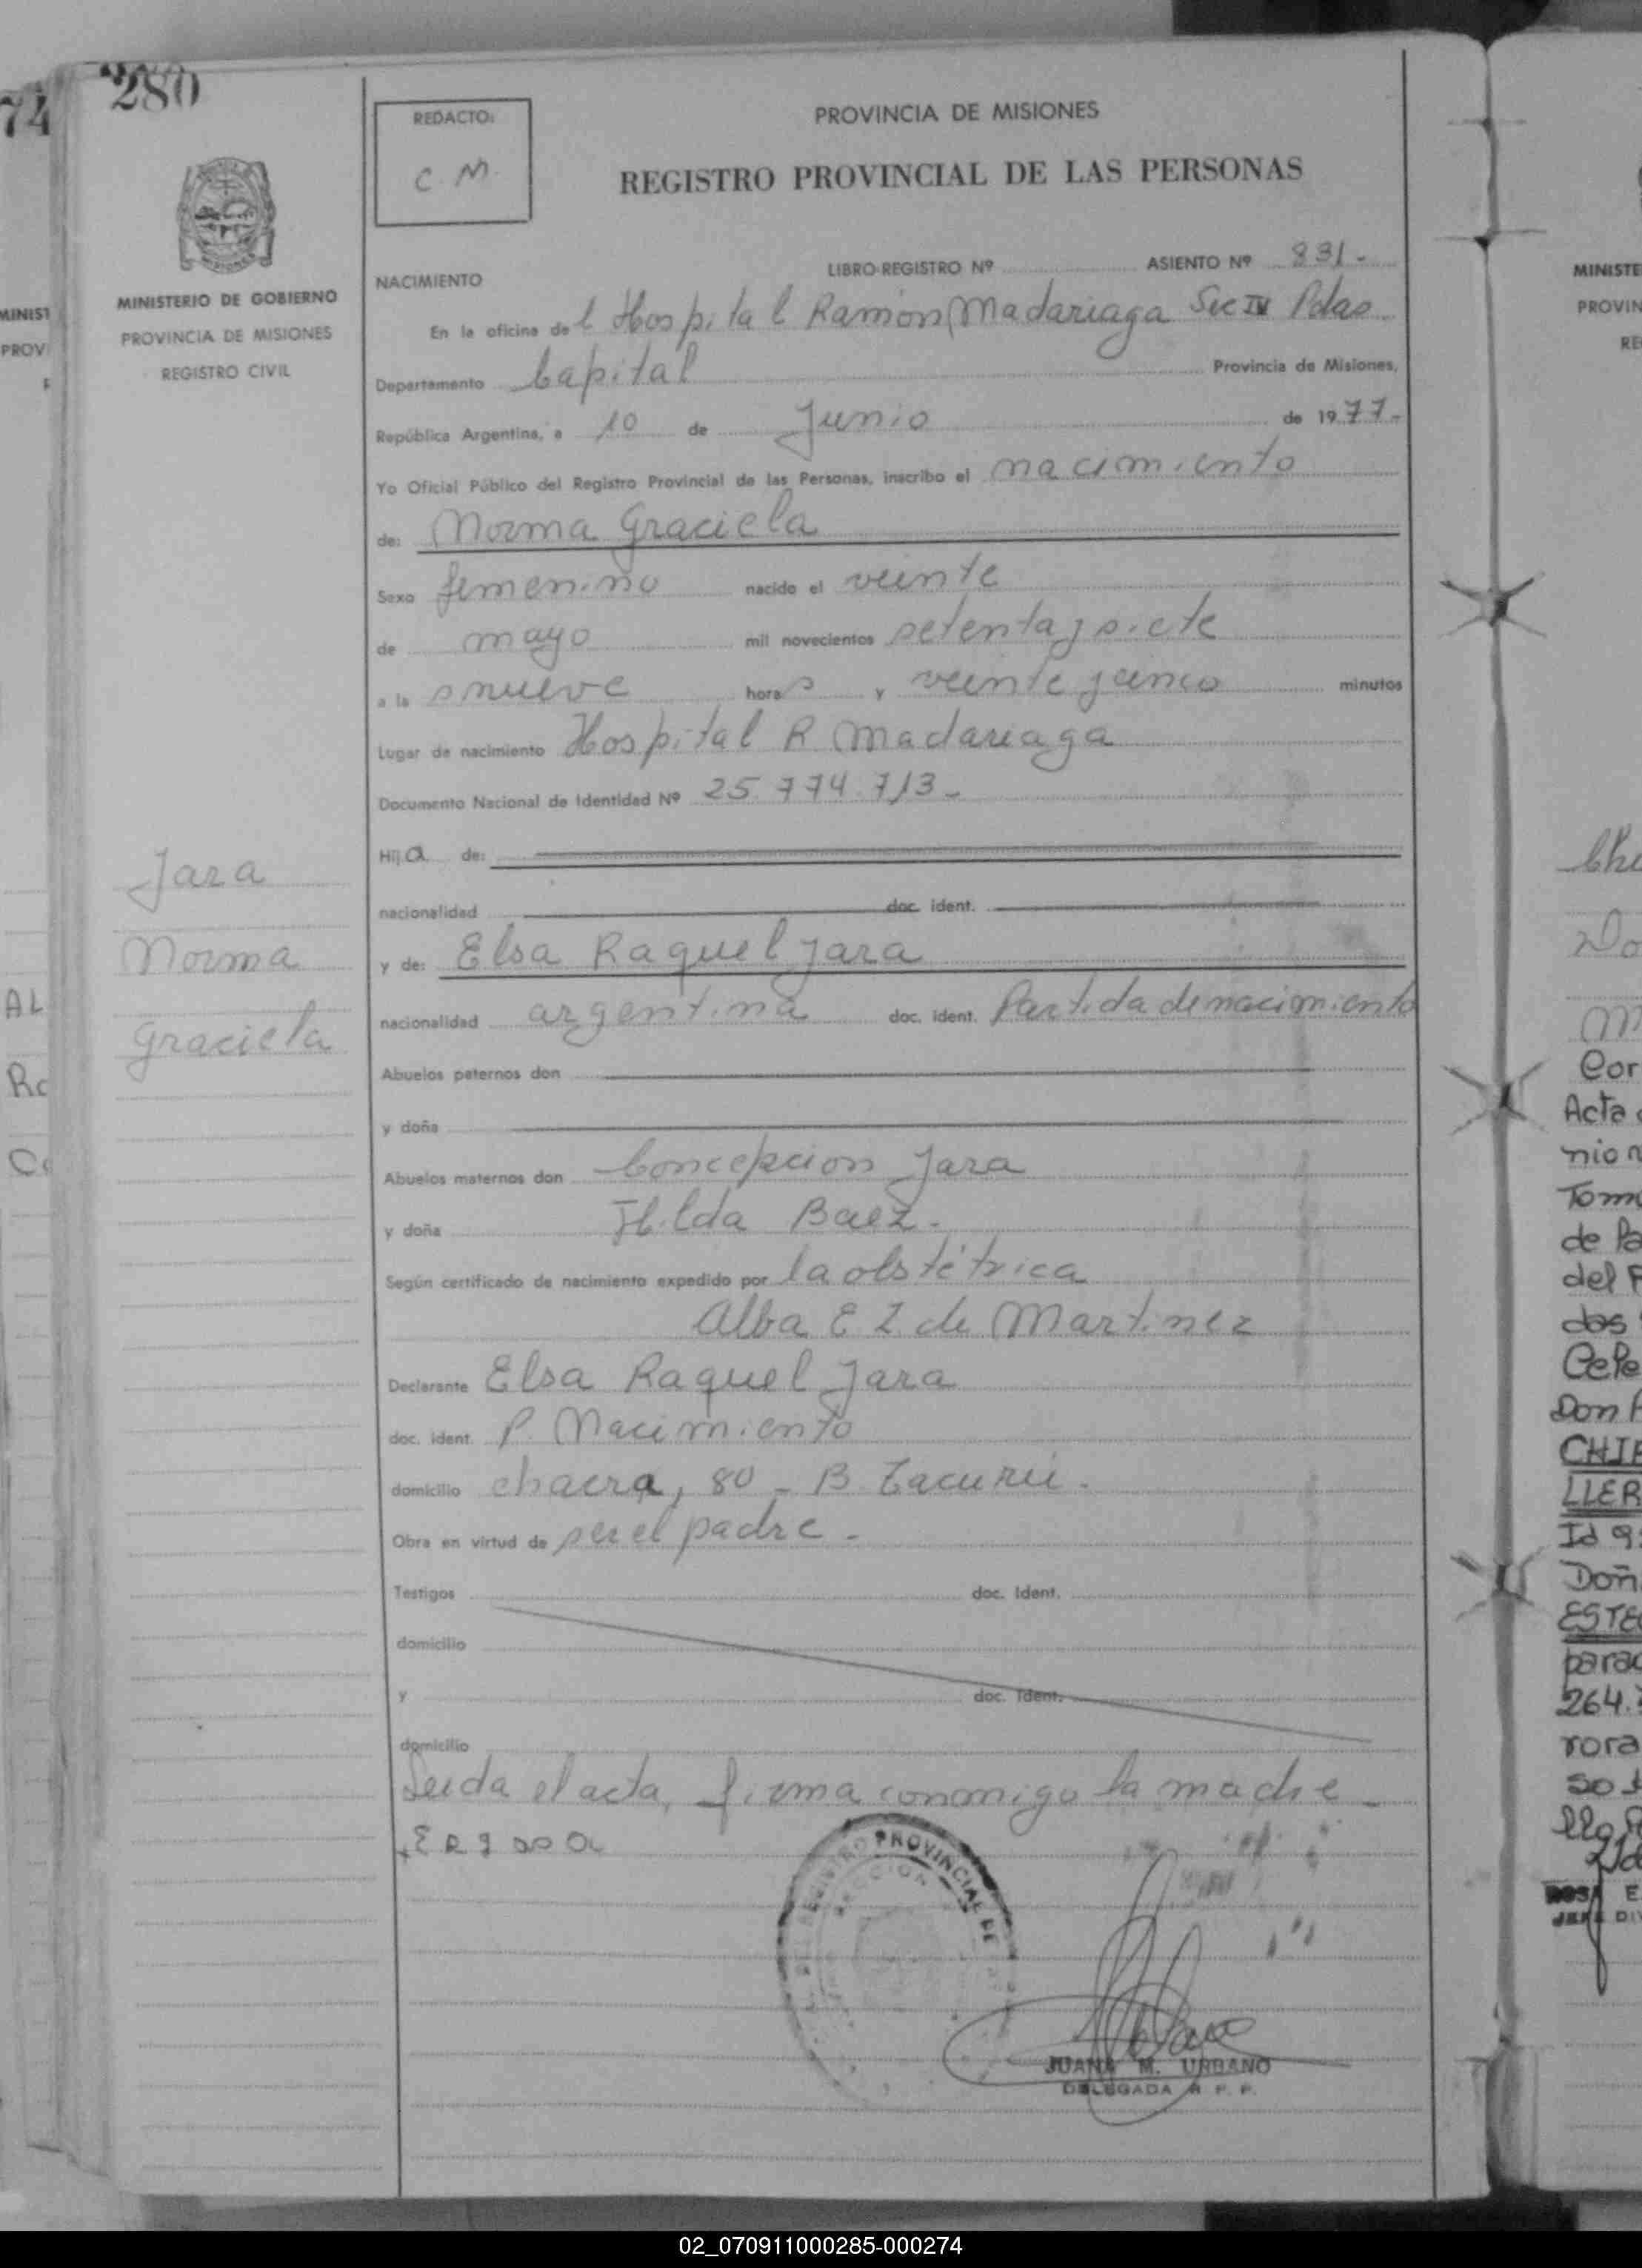 74
280
REDACTO:
C. M.
PROVINCIA DE MISIONES
REGISTRO PROVINCIAL DE LAS PERSONAS
MINISTERIO DE GOBIERNO
PROVINCIA DE MISIONES
REGISTRO CIVIL
NACIMIENTO
LIBRO-REGISTRO Nº ASIENTO Nº 831-
En la oficina del Hospital Ramón Madariaga Sec IV Pdas.
Departamento Capital Provincia de Misiones,
República Argentina, a 10 de Junio de 1977-
Yo Oficial Público del Registro Provincial de las Personas, inscribo el nacimiento
de: Norma Graciela
Sexo femenino nacido el veinte
de mayo mil novecientos setenta y siete
a la s nueve hora s y veinte y cinco minutos
Lugar de nacimiento Hospital R Madariaga
Documento Nacional de Identidad Nº 25.774.713-
Hija de:
nacionalidad doc. ident.
y de: Elsa Raquel Jara
nacionalidad argentina doc. ident. Partida de nacimiento
Jara
Norma
Graciela
Abuelos paternos don
y doña
Abuelos maternos don Concepcion Jara
y doña Hilda Baez.
Según certificado de nacimiento expedido por la obstétrica
Alba E Z de Martinez
Declarante Elsa Raquel Jara
doc. ident. P. Nacimiento
domicilio chacra, 80 - B. Tacurú.
Obra en virtud de ser el padre.
Testigos doc. Ident.
domicilio
y doc. Ident.
domicilio
Leida el acta, firma conmigo la madre-
REGISTRO PROVINCIAL DE
JUANA M. URBANO
DELEGADA R. P. P.
MINISTE
PROVIN
RE
Cor
Acta
nio n
Tom
de Pa
del P
dos
Cele
Don
CHI
LLER
Id 9
Doñ
ESTE
parag
264.
rora
so
02_070911000285-000274